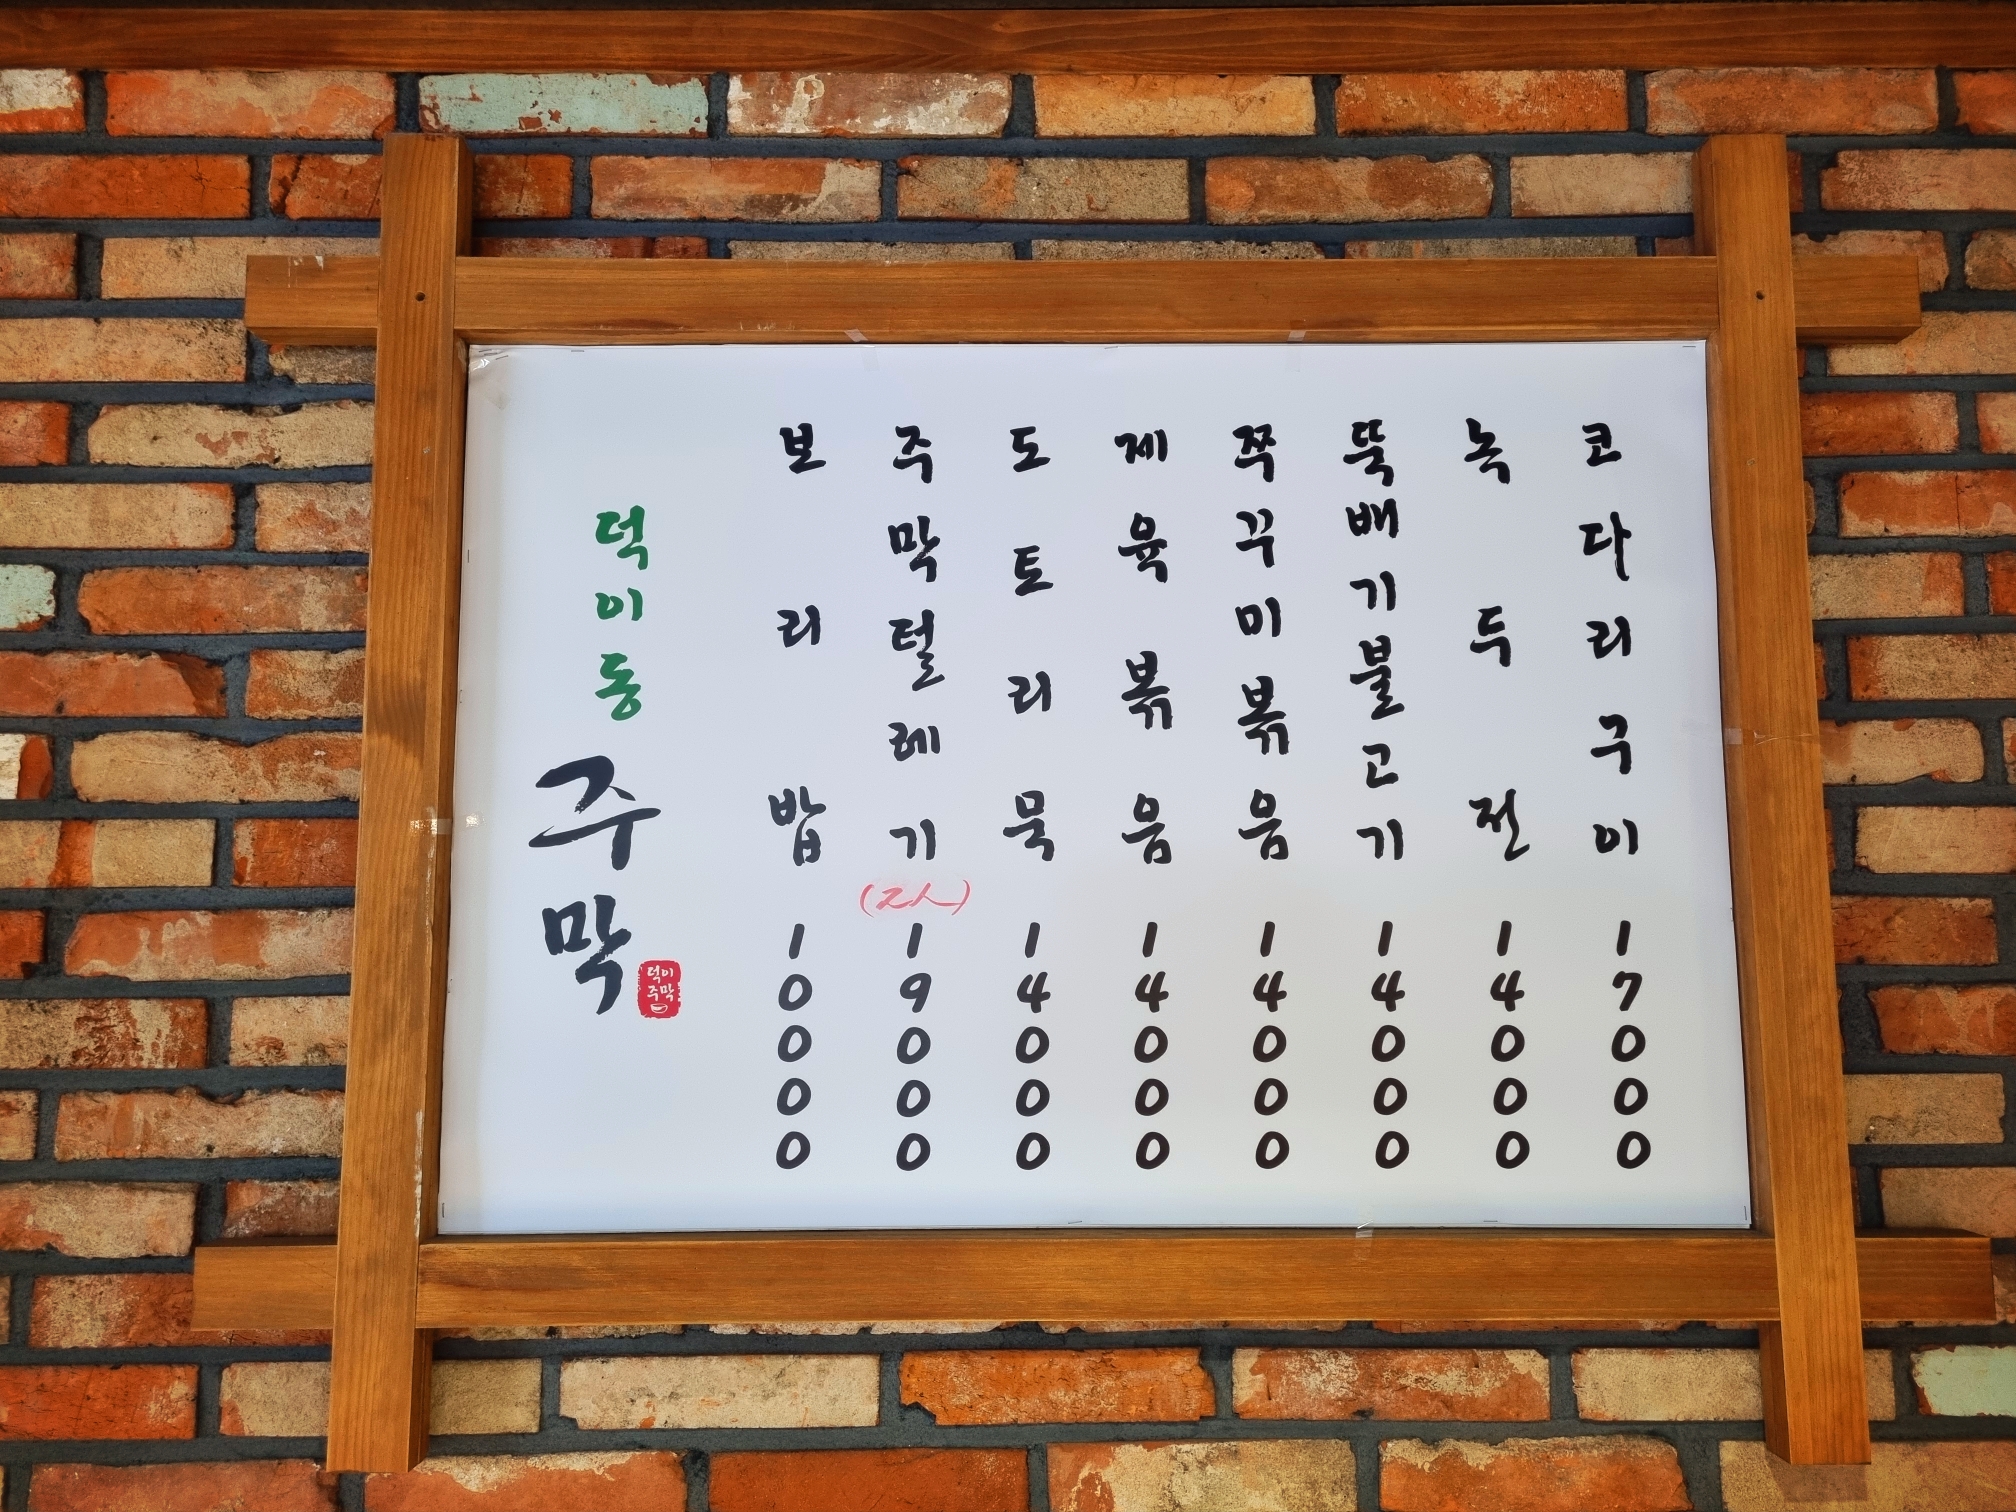 덕이동
주막
덕이
주막
보리밥 10000
주막털레기 (2人) 19000
도토리묵 14000
제육볶음 14000
쭈꾸미볶음 14000
뚝배기불고기 14000
녹두전 14000
코다리구이 17000